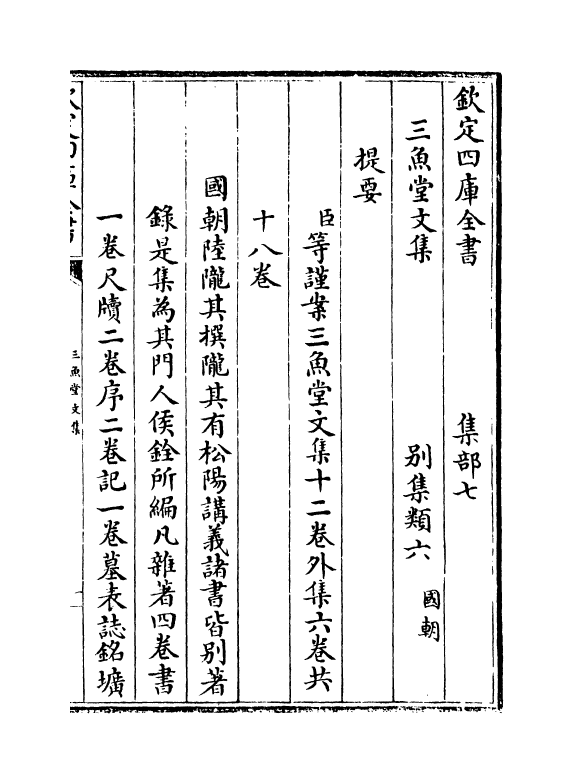 欽定四庫全書 集部七
三魚堂文集 别集類六 國朝
提要
臣等謹案三魚堂文集十二卷外集六卷共
十八卷
國朝陸隴其撰隴其有松陽講義諸書皆别著
錄是集為其門人侯銓所編凡雜著四卷書
一卷尺牘二卷序二卷記一卷墓表誌銘壙
三魚堂文集